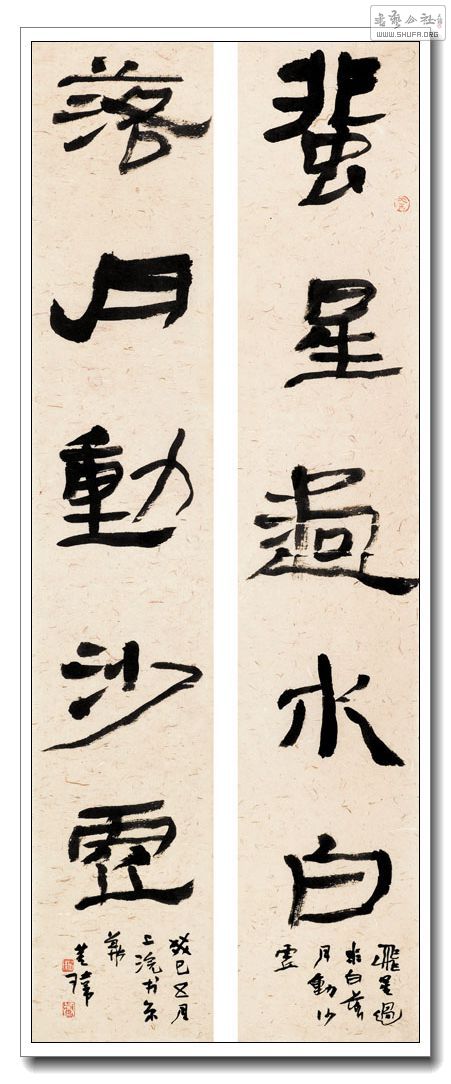 書藝公社
WWW.SHUFA.ORG
蜚星過水白
飛星過
水白落
月動沙
虛
落月動沙虛
癸巳五月
上浣於京
華